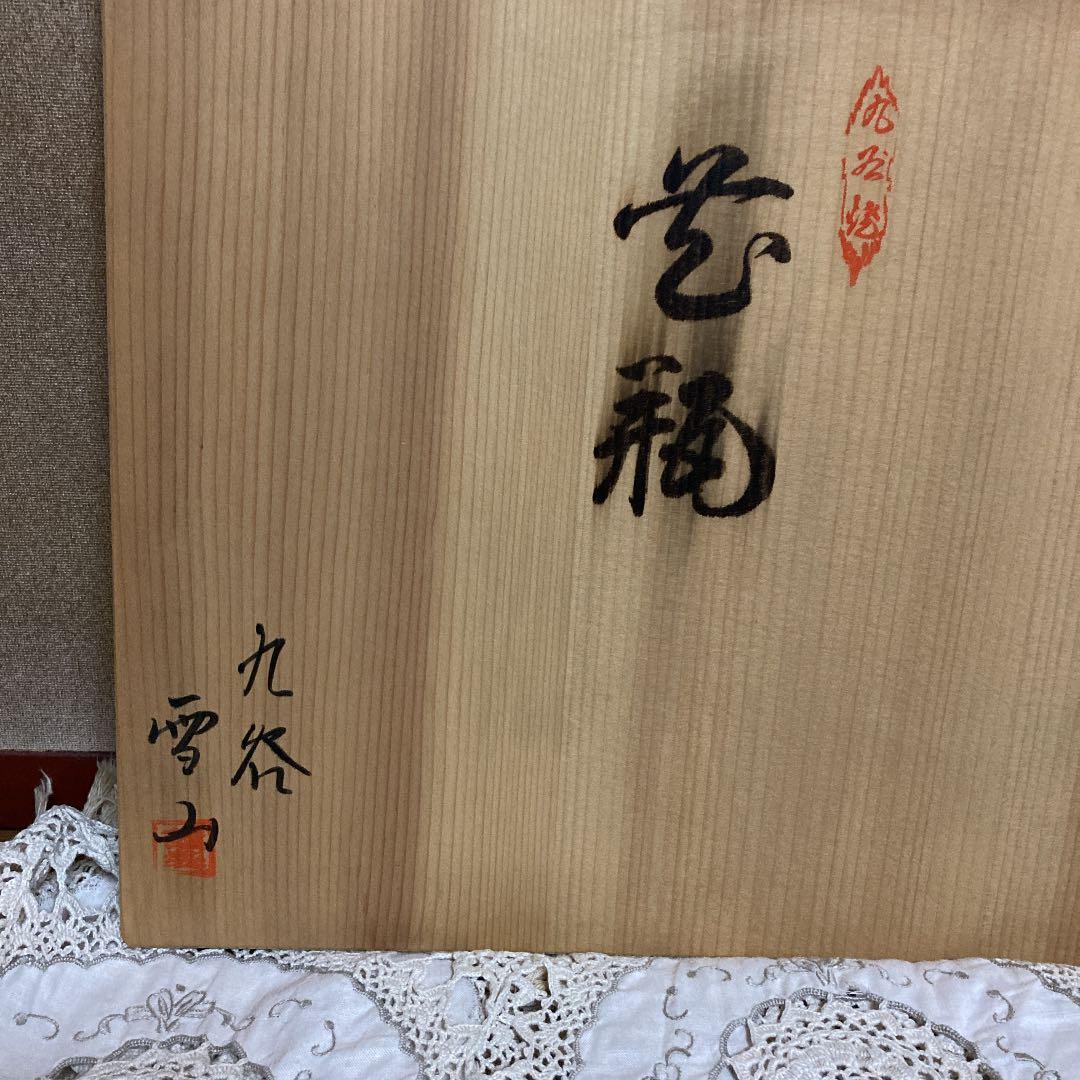 九谷焼
花瓶
九谷
雪山